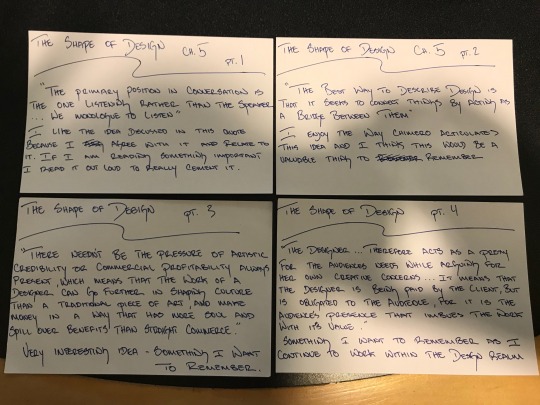 The Shape of Design Ch. 5 pt. 1
"The primary position in conversation is
the one listening rather than the speaker
... We monologue to listen"
I like the idea discussed in this quote
because I agree with it and relate to
it. If I am reading something important
I read it out loud to really cement it.
The Shape of Design Ch. 5 pt. 2
"The best way to describe design is
that it seeks to connect things by acting as
a bridge between them"
I enjoy the way Chimero articulates
this idea and I think this would be a
valuable thing to remember
The Shape of Design pt. 3
"There needn't be the pressure of artistic
credibility or commercial profitability always
present, which means that the work of a
designer can go further in shaping culture
than a traditional piece of art, and make
money in a way that has more soul and
spill over benefits than straight commerce."
Very interesting idea - something I want
to remember.
The Shape of Design pt. 4
"The designer... therefore acts as a proxy
for the audiences needs while arguing for
her own creative concerns... It means that
the designer is being paid by the client, but
is obligated to the audience, for it is the
audience's presence that imbues the work
with its value."
Something I want to remember as I
continue to work within the design realm